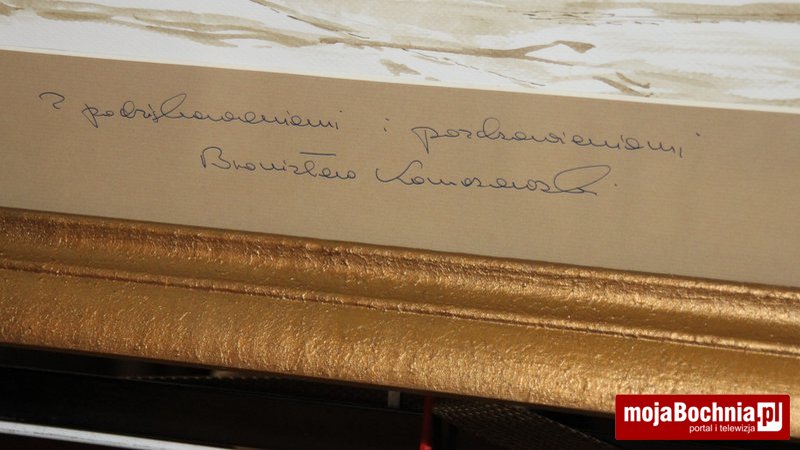 Z podziękowaniami i pozdrowieniami
Bronisław Komorowski
mojaBochnia.pl
portal i telewizja